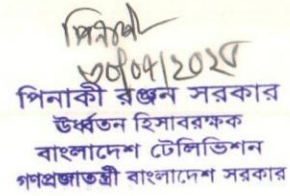 পিনাকী
৩০/০৭/২০২৫
পিনাকী রঞ্জন সরকার
ঊর্ধ্বতন হিসাবরক্ষক
বাংলাদেশ টেলিভিশন
গণপ্রজাতন্ত্রী বাংলাদেশ সরকার